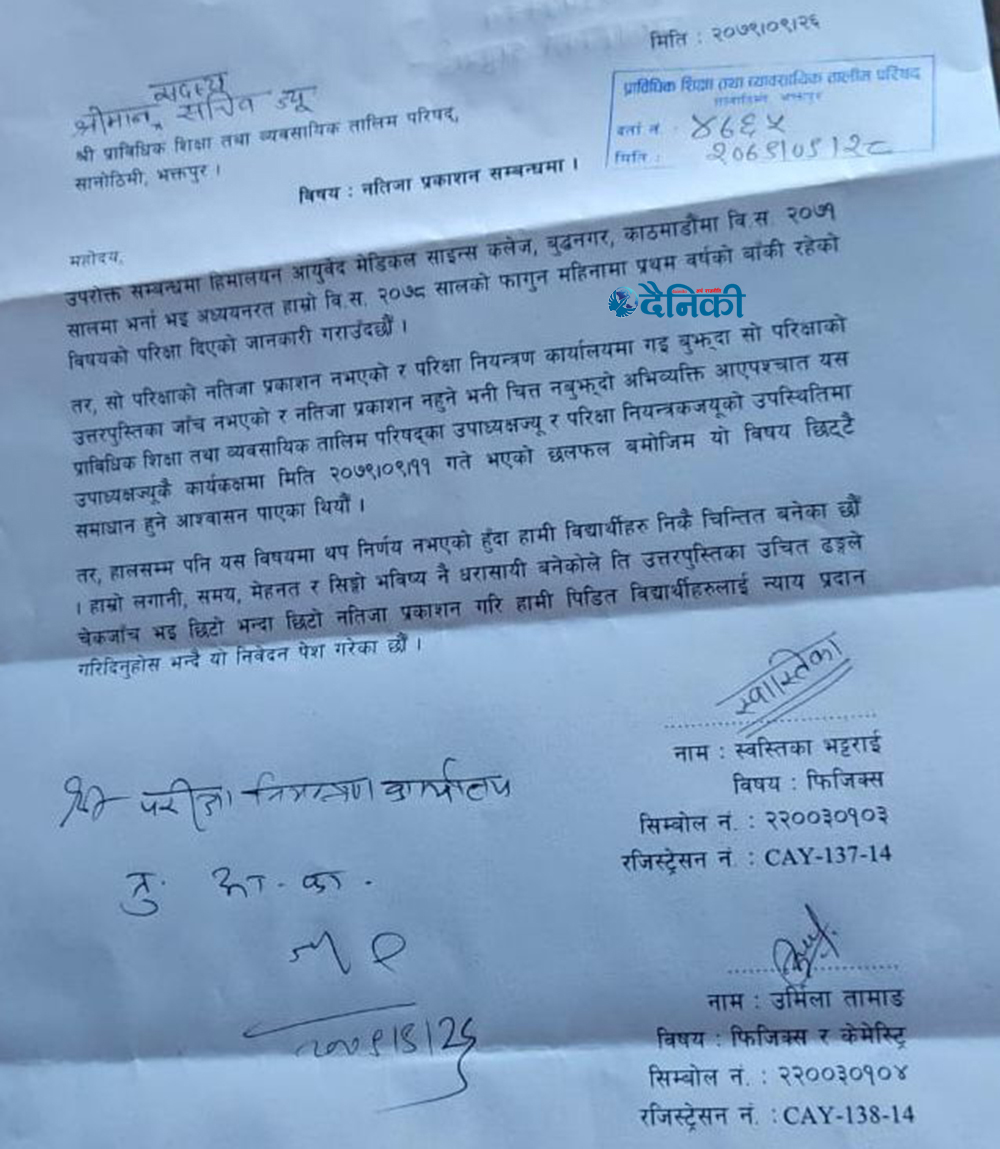 मिति : २०७९।०९।२६
सदस्य
श्रीमान् सचिव ज्यू
श्री प्राविधिक शिक्षा तथा व्यवसायिक तालिम परिषद,
सानोठिमी, भक्तपुर ।
प्राविधिक शिक्षा तथा व्यावसायिक तालीम परिषद
सानोठिमी भक्तपुर
दर्ता नं. : ४७६५
मिति : २०७९।०९।२८
विषय : नतिजा प्रकाशन सम्बन्धमा ।
महोदय,
उपरोक्त सम्बन्धमा हिमालयन आयुर्वेद मेडिकल साइन्स कलेज, बुद्धनगर, काठमाडौंमा वि.स. २०७१
सालमा भर्ना भइ अध्ययनरत हाम्रो वि.स. २०७८ सालको फागुन महिनामा प्रथम वर्षको बाँकी रहेको
विषयको परिक्षा दिएको जानकारी गराउँदछौं ।
दैनिकी
तर, सो परिक्षाको नतिजा प्रकाशन नभएको र परिक्षा नियन्त्रण कार्यालयमा गइ बुझ्दा सो परिक्षाको
उत्तरपुस्तिका जाँच नभएको र नतिजा प्रकाशन नहुने भनी चित्त नबुझ्दो अभिव्यक्ति आएपश्चात यस
प्राविधिक शिक्षा तथा व्यवसायिक तालिम परिषद्का उपाध्यक्षज्यू र परिक्षा नियन्त्रकज्यूको उपस्थितिमा
उपाध्यक्षज्यूकै कार्यकक्षमा मिति २०७९।०९।११ गते भएको छलफल बमोजिम यो विषय छिट्टै
समाधान हुने आश्वासन पाएका थियौं ।
तर, हालसम्म पनि यस विषयमा थप निर्णय नभएको हुँदा हामी विद्यार्थीहरु निकै चिन्तित बनेका छौं
। हाम्रो लगानी, समय, मेहनत र सिङ्गो भविष्य नै धरासायी बनेकोले ति उत्तरपुस्तिका उचित ढङ्गले
चेकजाँच भइ छिटो भन्दा छिटो नतिजा प्रकाशन गरि हामी पिडित विद्यार्थीहरुलाई न्याय प्रदान
गरिदिनुहोस भन्दै यो निवेदन पेश गरेका छौं ।
स्वास्तिका
नाम : स्वस्तिका भट्टराई
विषय : फिजिक्स
सिम्बोल नं. : २२००३०१०३
रजिस्ट्रेसन नं. : CAY-137-14
श्री परीक्षा नियन्त्रण कार्यालय
तु. आ. का.
२०७९।९।२८
नाम : उर्मिला तामाङ
विषय : फिजिक्स र केमेस्ट्रि
सिम्बोल नं. : २२००३०१०४
रजिस्ट्रेसन नं. : CAY-138-14